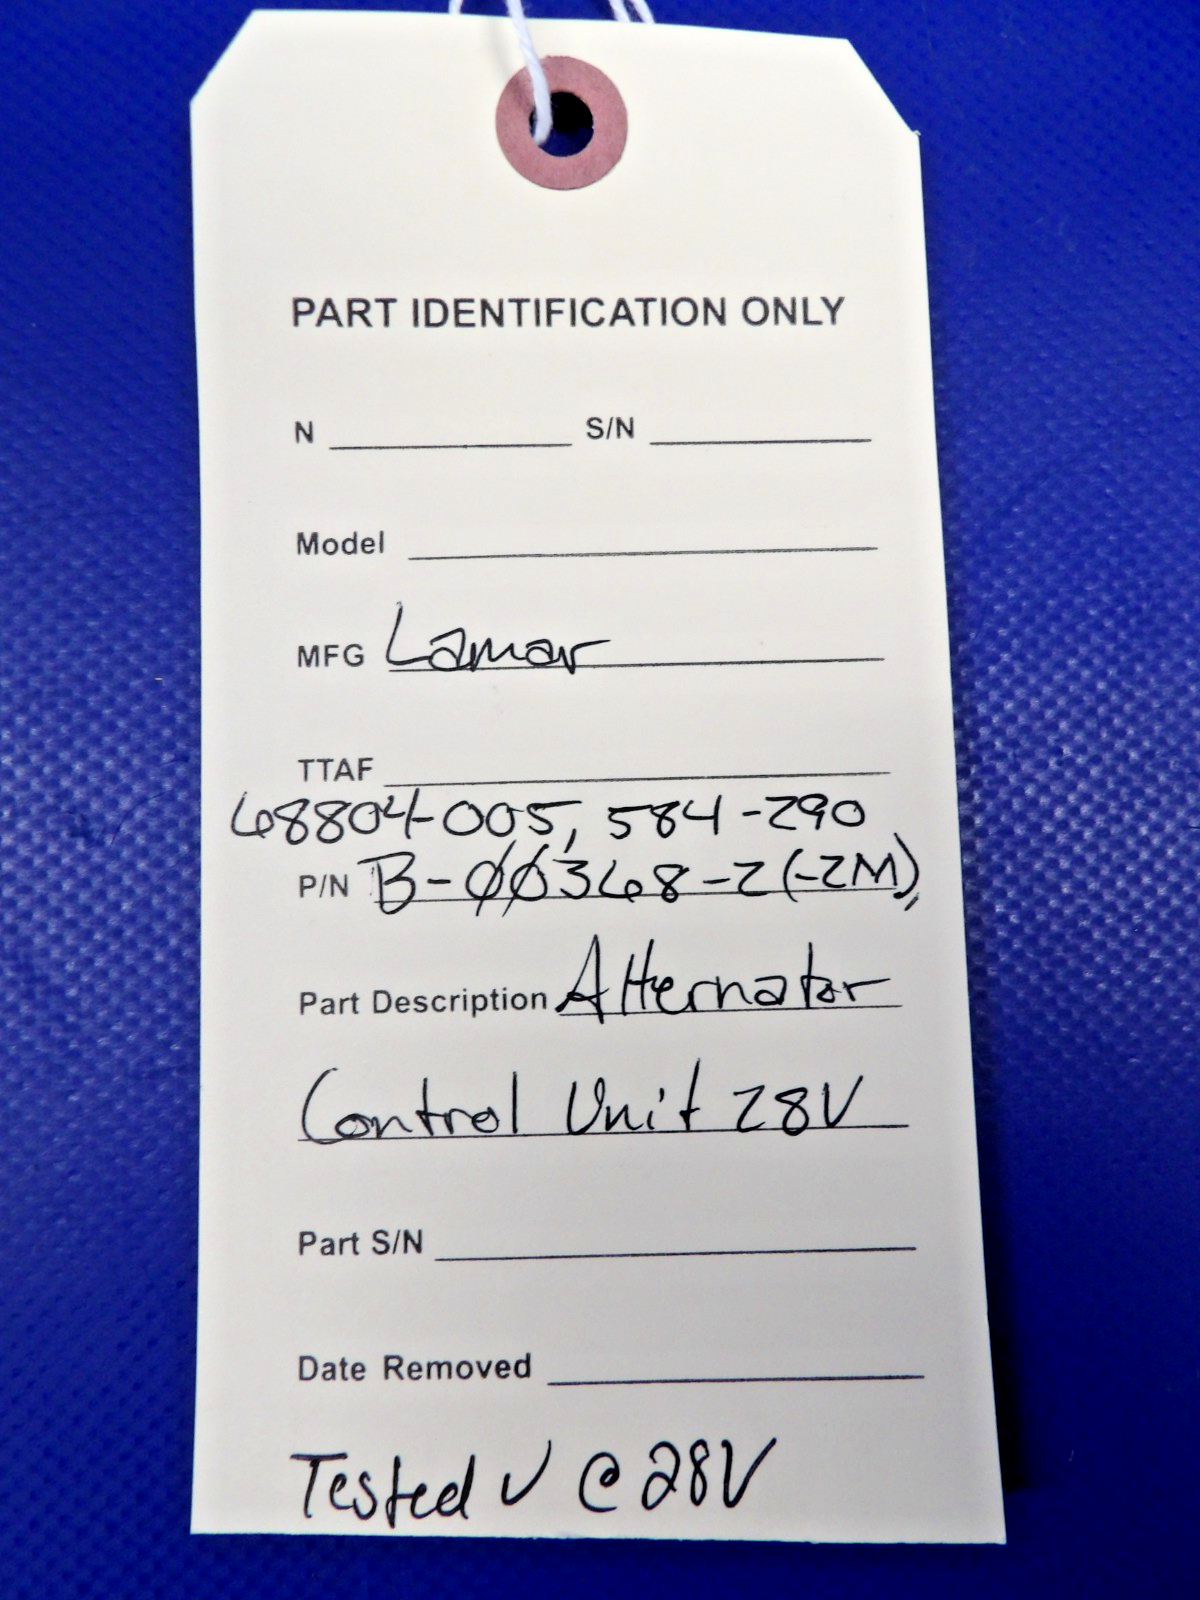 PART IDENTIFICATION ONLY
N S/N
Model
MFG Lamar
TTAF
68804-005, 584-290
P/N B-00368-2(-2M),
Part Description Alternator
Control Unit 28V
Part S/N
Date Removed
Tested ✓ @ 28V